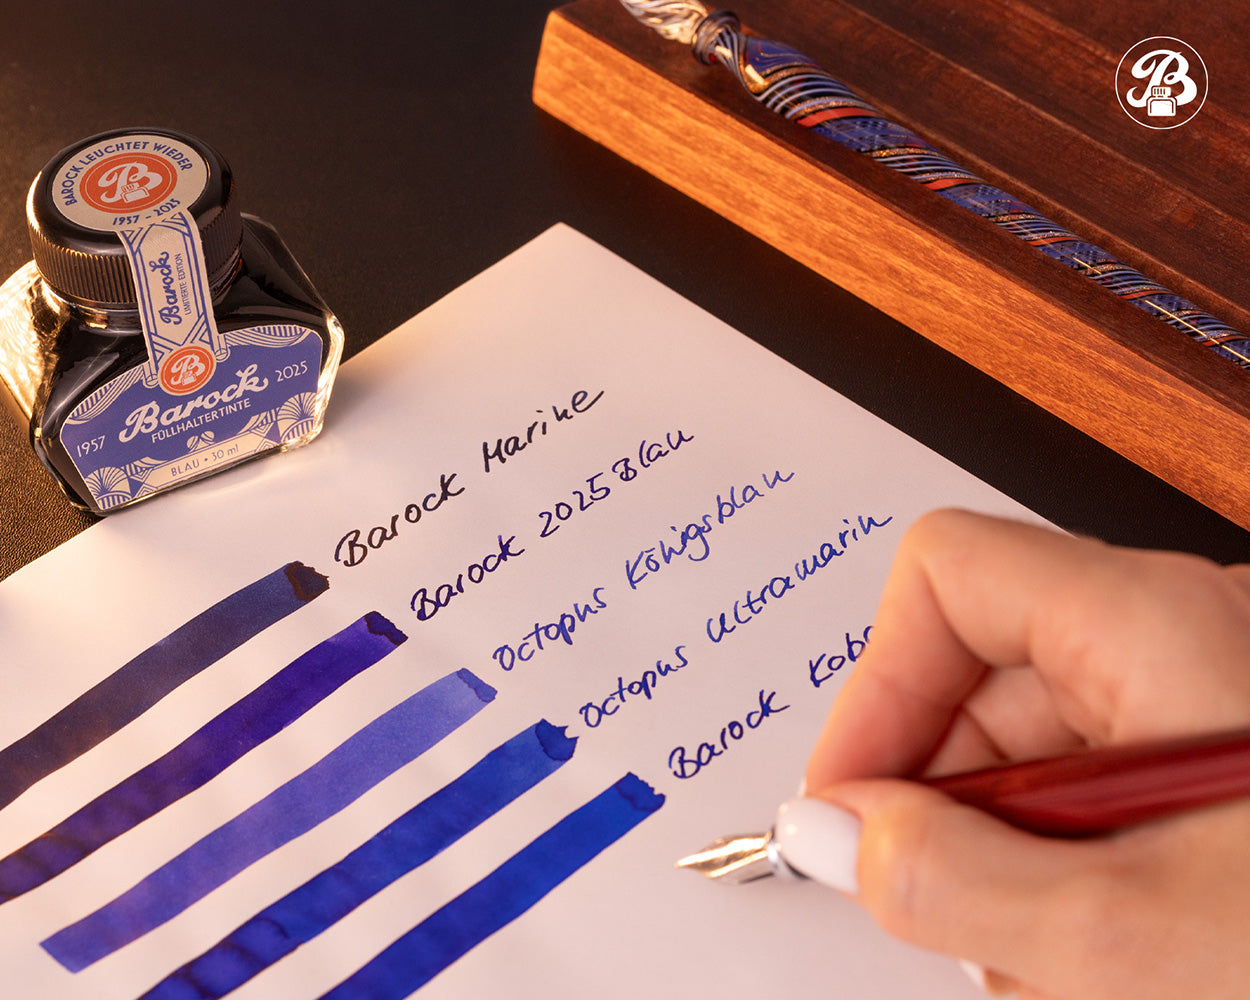 B
BAROCK LEUCHTET WIEDER
B
1957 - 2025
Barock
LIMITIERTE EDITION
B
1957 Barock 2025
FÜLLHALTERTINTE
BLAU • 30 ml
Barock Marine
Barock 2025 Blau
Octopus Königsblau
Octopus Ultramarin
Barock Kob